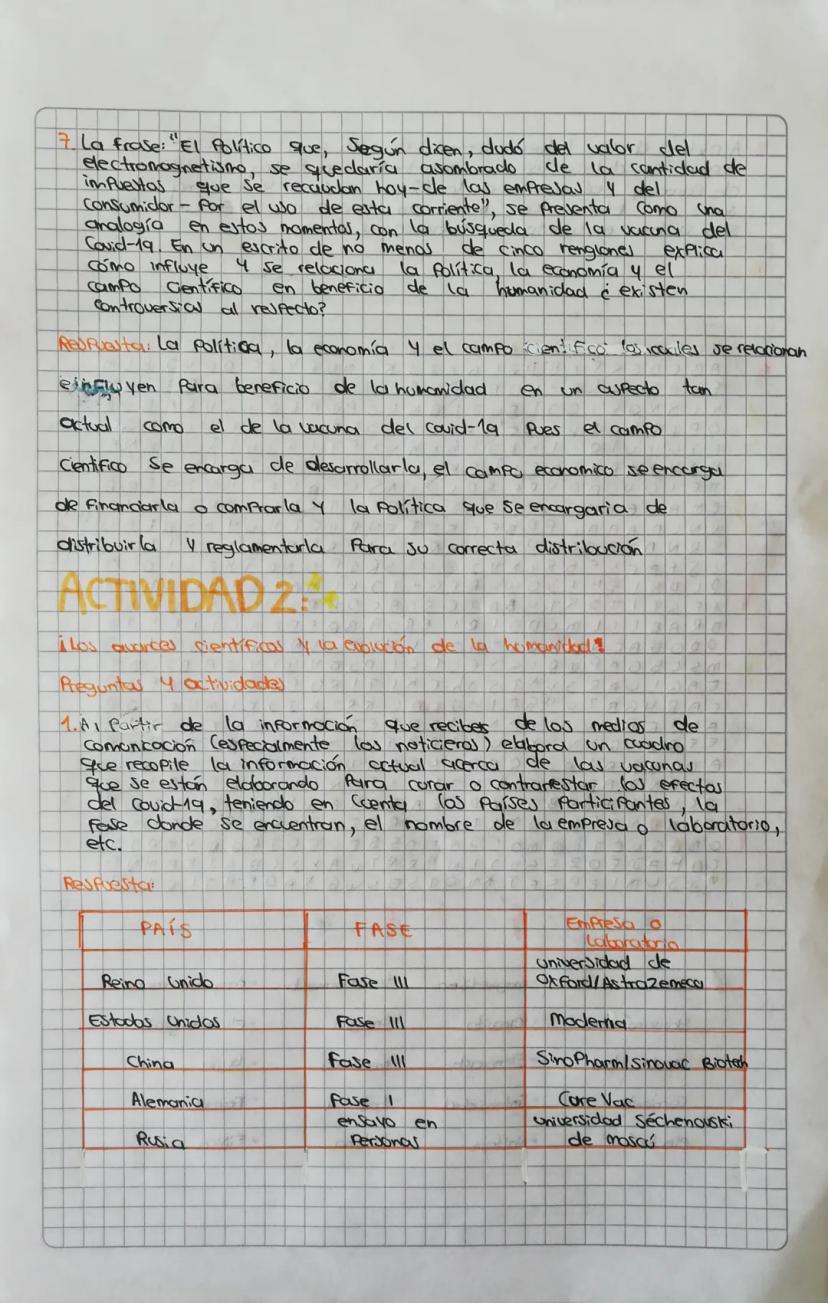 7. La frase: "El Político que, según dicen, dudó del valor del
electromagnetismo, se quedaría asombrado de la cantidad de
impuestos que se recaudan hoy-de las empresas y del
consumidor- por el uso de esta corriente", se presenta como una
analogía en estos momentos, con la búsqueda de la vacuna del
Covid-19. En un escrito de no menos de cinco renglones explica
cómo influye y se relaciona la política, la economía y el
campo científico en beneficio de la humanidad ¿ existen
controversias al respecto?
Respuesta: La política, la economía y el campo cientifico los cuales se relacionan
e influyen para beneficio de la humanidad en un aspecto tan
actual como el de la vacuna del covid-19 pues el campo
cientifico se encarga de desarrollarla, el campo economico se encarga
de financiarla o comprarla y la política que se encargaria de
distribuirla y reglamentarla para su correcta distribución
ACTIVIDAD 2:
¡Los avances científicos y la evolución de la humanidad!
Preguntas y actividades
1. A partir de la información que recibes de los medios de
comunicación (especialmente los noticieros) elabora un cuadro
que recopile la información actual acerca de las vacunas
que se están elaborando para curar o contrarrestar los efectos
del covid-19, teniendo en cuenta los países participantes, la
fase donde se encuentran, el nombre de la empresa o laboratorio,
etc.
Respuesta:
PAÍS FASE Empresa o
Laboratorio
Reino Unido Fase III universidad de
Oxford/AstraZemeca
Estados Unidos Fase III Moderna
China Fase III SinoPharm/sinovac Biotech
Alemania Fase I CureVac
Rusia ensayo en
personas universidad Séchenovski
de moscú